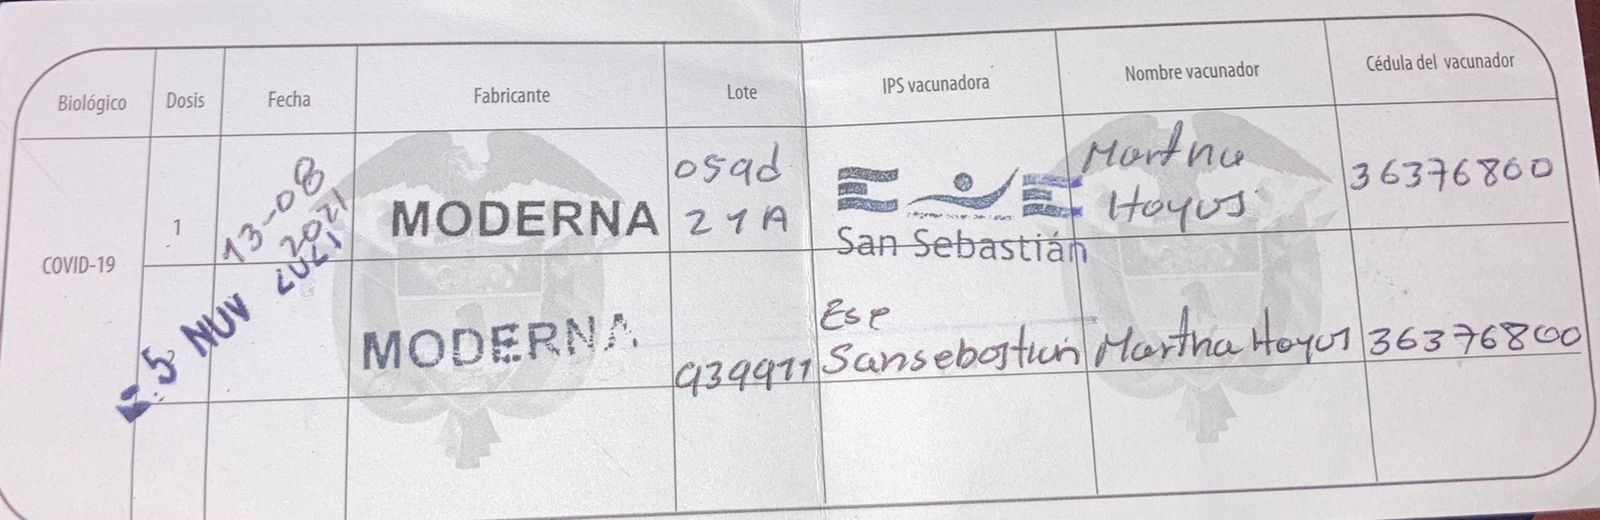 Biológico Dosis Fecha Fabricante Lote IPS vacunadora Nombre vacunador Cédula del vacunador
COVID-19
1
13-08
2021
MODERNA
059d
21A
ESE
San Sebastián
Martha
Hoyos
36376800
5 NOV 2021
MODERNA
939971
Ese
Sansebastian
Martha Hoyos
36376800